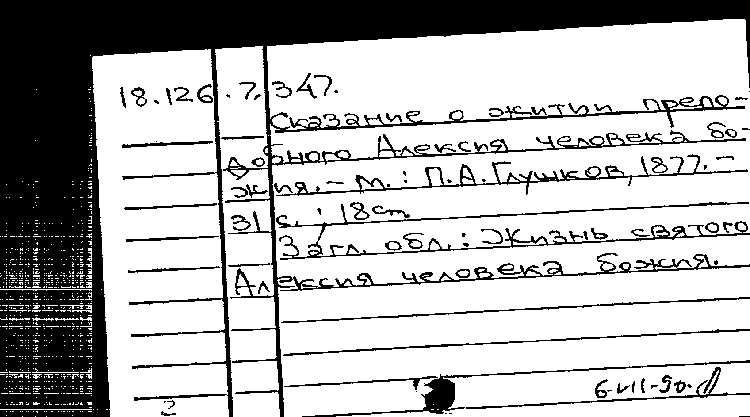 18.126.7.347.
Сказание о житии препо-
добного Алексия человека бо-
жия. – М.: П.А. Глушков, 1877. –
31 с. ; 18 см.
Загл. обл.: Жизнь святого
Алексия человека божия.
6-VII-90.